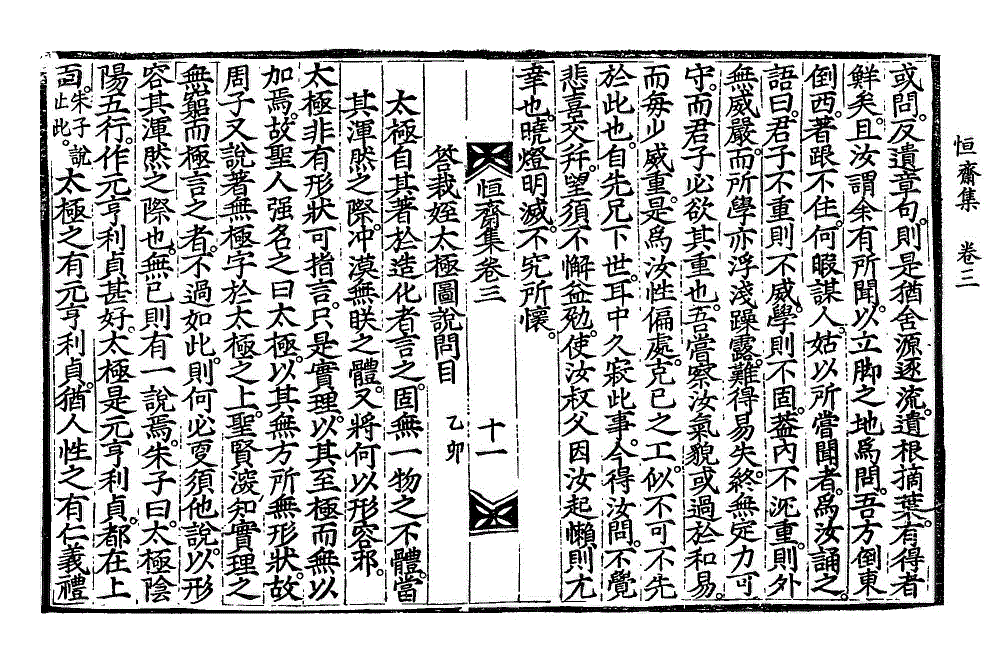 恒齋集　卷三
或問。反遺章句。則是猶舍源逐流。遺根摘葉。有得者
鮮矣。且汝謂余有所聞。以立脚之地爲問。吾方倒東
倒西。著跟不住。何暇謀人。姑以所嘗聞者。爲汝誦之。
語曰。君子不重則不威。學則不固。蓋內不沉重。則外
無威嚴。而所學亦浮淺躁露。難得易失。終無定力可
守。而君子必欲其重也。吾嘗察汝氣貌或過於和易。
而每少威重。是爲汝性偏處。克己之工。似不可不先
於此也。自先兄下世。耳中久寂此事。今得汝問。不覺
悲喜交幷。望須不懈益勉。使汝叔父因汝起懶則尤
幸也。曉燈明滅。不究所懷。
恒齋集卷三　十一
答栽姪太極圖說問目　乙卯
太極自其著於造化者言之。固無一物之不體。當
其渾然之際。冲漠無眹之體。又將何以形容邪。
太極非有形狀可指言。只是實理。以其至極而無以
加焉。故聖人强名之曰太極。以其無方所無形狀。故
周子又說著無極字於太極之上。聖賢深知實理之
無軆而極言之者。不過如此。則何必更須他說。以形
容其渾然之際也。無已則有一說焉。朱子曰。太極陰
陽五行。作元亨利貞甚好。太極是元亨利貞。都在上
面。朱子說止此。太極之有元亨利貞。猶人性之有仁義禮